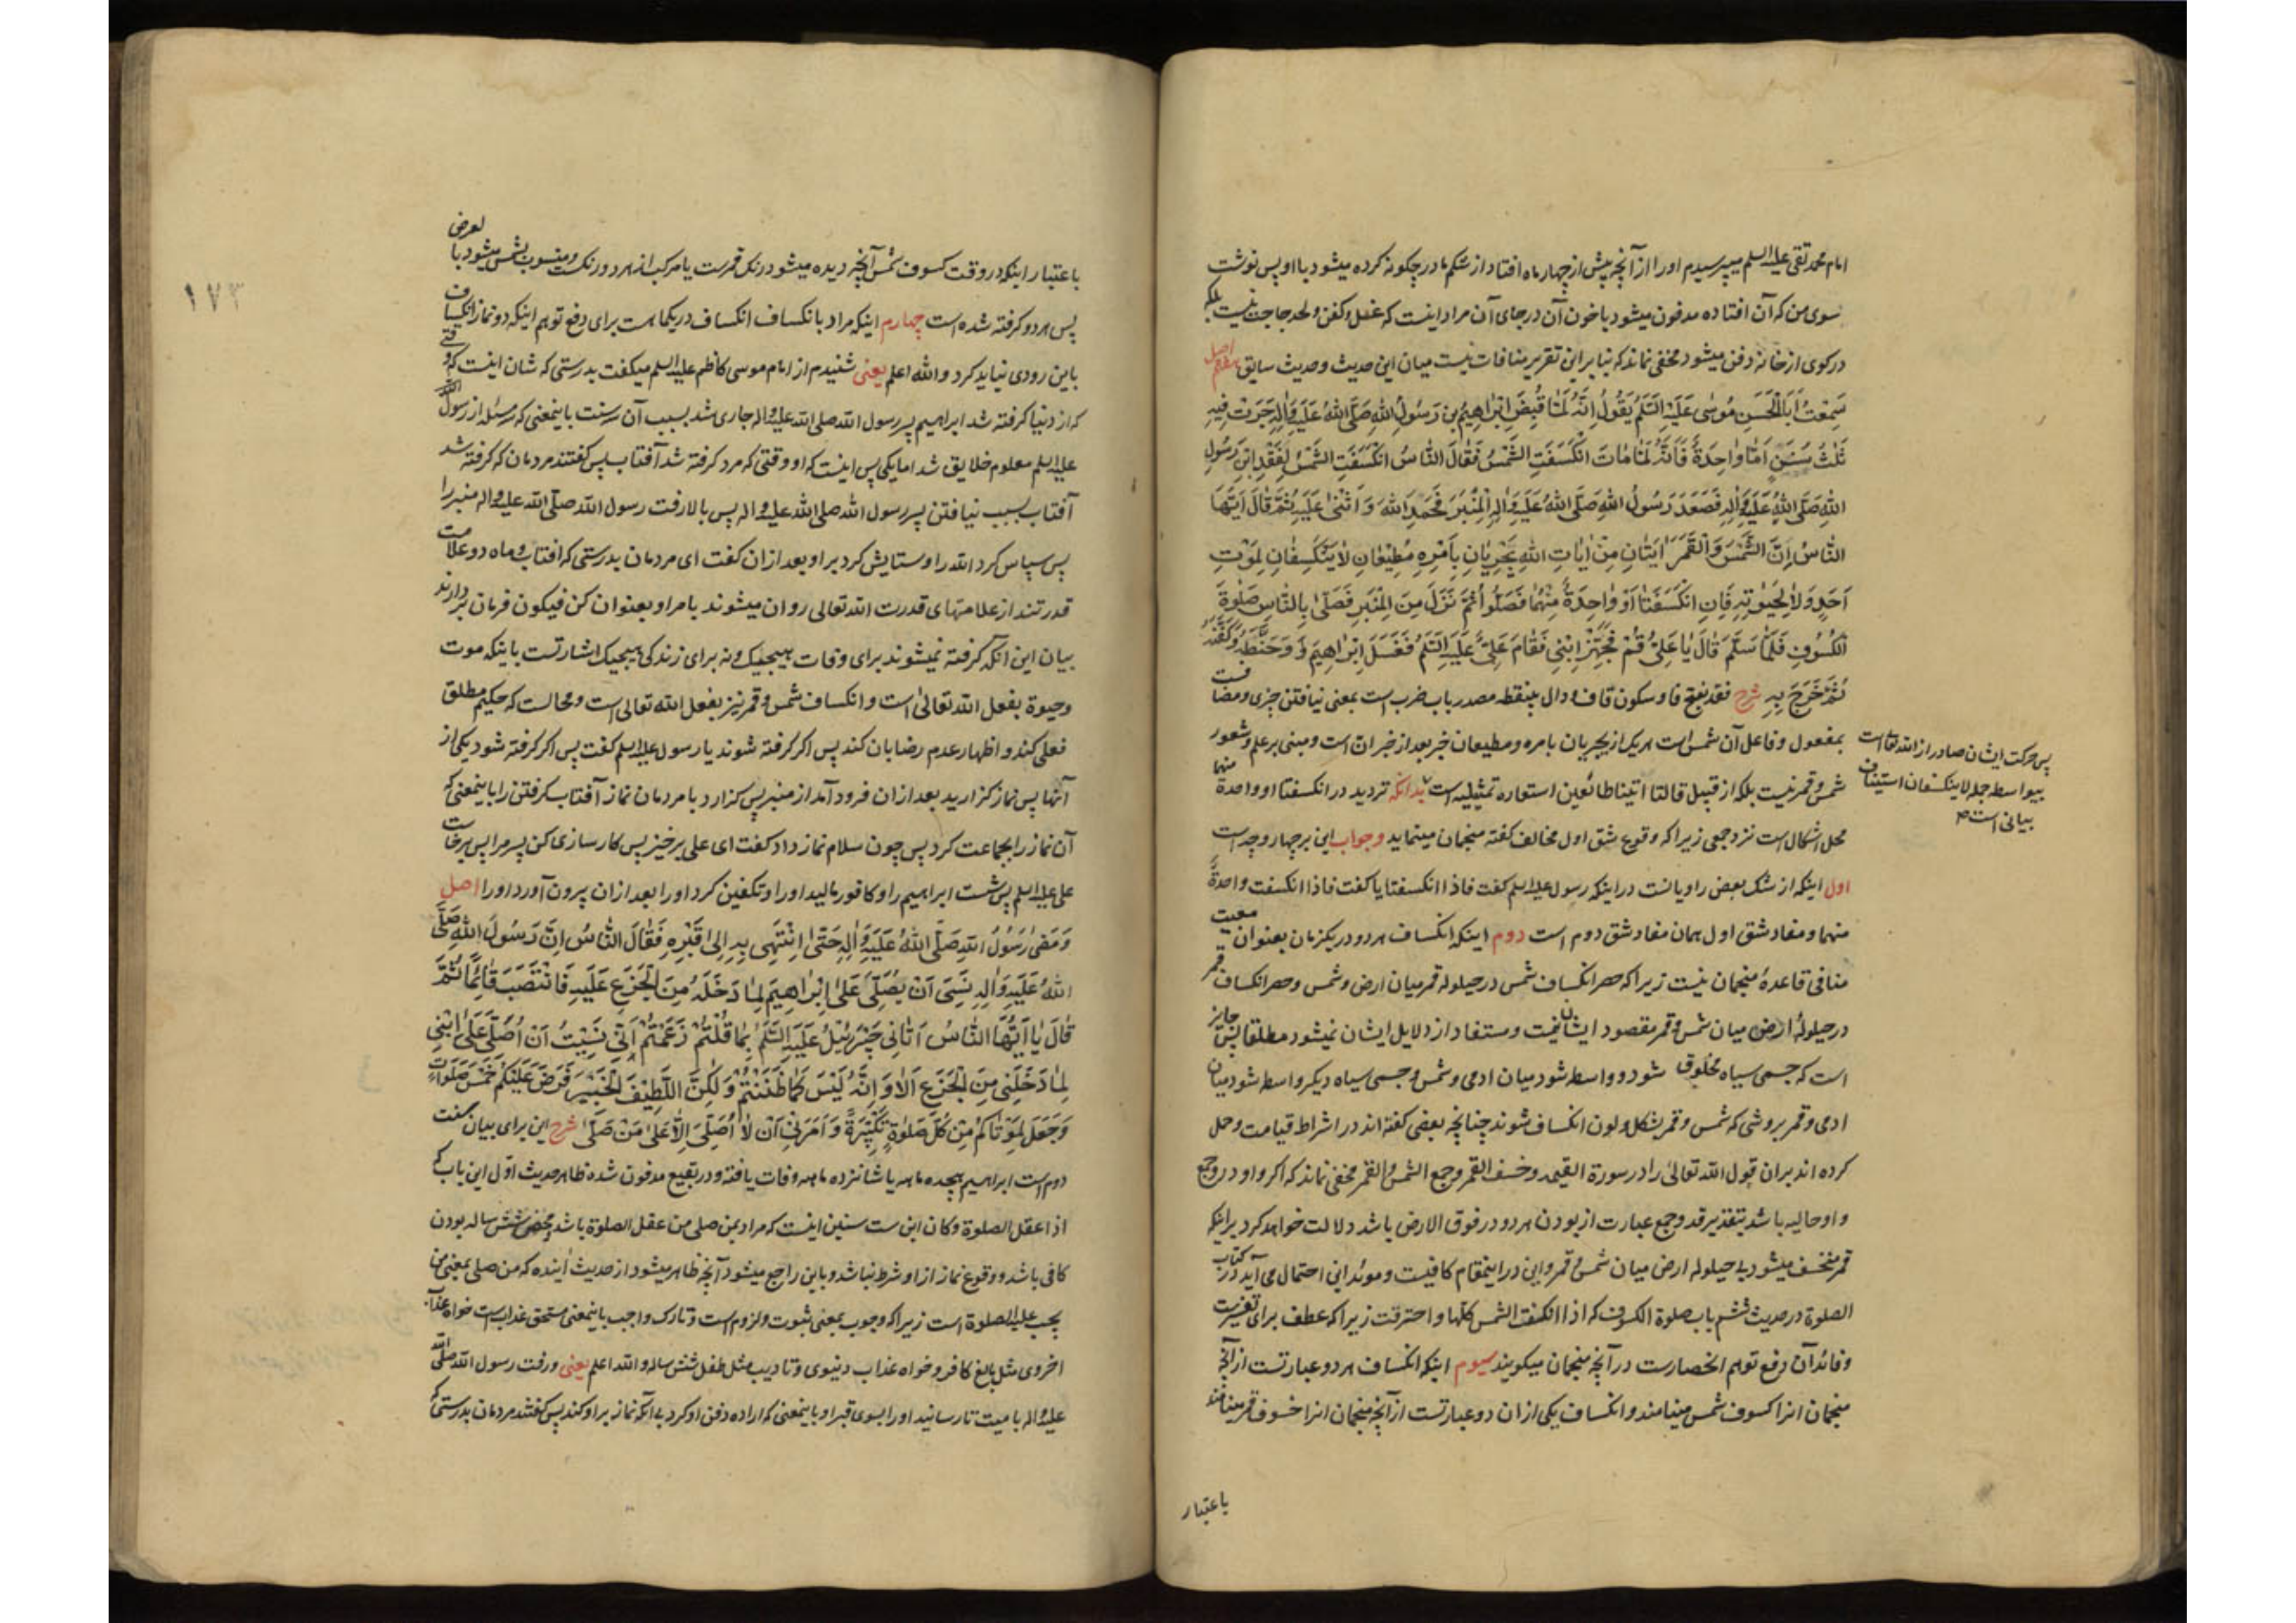 امام محمد تقی علیه السلم میپرسیدم اورا از آنچه پیش از چهار ماه افتاد از شکم مادر چکونه کرده میشود با او پس نوشت
سوی من که آن افتاده مدفون میشود با خون آن در جای آن مراد اینست که غسل و کفن و لحد حاجت نیست بلکه
در کوی از خانه دفن میشود مخفی نماند که بنا بر این تقریر منافات نیست میان این حدیث و حدیث سابق اصل هفتم
سَمِعْتُ اَبَا الْحَسَنِ مُوسٰی عَلَیْهِ السَّلَم یَقُولُ اِنَّهُ لَمّٰا قُبِضَ اِبْرٰاهِیمُ بن رَسُولُ اللهِ صَلَّی اللهُ عَلَیْهِ وَاٰلِهِ جَرَتْ فِیهِ
ثَلٰثُ سُنَنٍ اَمّٰا وٰاحِدَةٌ فَاَنَّهُ لَمّٰا مٰاتَ انْکَسَفَتِ الشَّمْسُ فَقٰالَ النّٰاسُ انْکَسَفَتِ الشَّمْسُ لِفَقْدِ ابْنِ رَسُولِ
اللهِ صَلَّی اللهُ عَلَیْهِ وَاٰلِهِ فَصَعَدَ رَسُولُ اللهِ صَلَّی اللهُ عَلَیْهِ وَاٰلِهِ الْمِنْبَرَ فَحَمِدَ اللهَ وَ اَثْنٰی عَلَیْهِ ثُمَّ قٰالَ اَیُّهَا
النّٰاسُ اِنَّ الشَّمْسَ وَالْقَمَرَ اٰیَتٰانِ مِنْ اٰیٰاتِ اللهِ یَجْرِیٰانِ بِاَمْرِهِ مُطِیعٰانِ لٰا یَنْکَسِفٰانِ لِمَوْتِ
اَحَدٍ وَلٰا لِحَیٰوتِهِ فَاِنِ انْکَسَفَتٰا اَوْ وٰاحِدَةٌ مِنْهُمٰا فَصَلُّوا ثُمَّ نَزَلَ مِنَ الْمِنْبَرِ فَصَلّٰی بِالنّٰاسِ صَلٰوةَ
الْکُسُوفِ فَلَمّٰا سَلَّمَ قٰالَ یٰا عَلِیُّ قُمْ فَجَهِّزْ ابْنِی فَقٰامَ عَلِیٌّ عَلَیْهِ السَّلَمُ فَغَسَلَ اِبْرٰاهِیمَ وَ وَحَنَّطَهُ وَکَفَّنَهُ
ثُمَّ خَرَجَ بِهِ شرح فقد بفتح فا و سکون قاف و دال بینقطه مصدر باب ضرب است بمعنی نیافتن چیزی و مضافست
بمفعول و فاعل آن شمس است هر یک از یجریان بامره و مطیعان خبر بعد از خبر ان است و مبنی بر علم و شعور
شمس و قمر نیست بلکه از قبیل قالتا اتینا طائعین استعاره تمثیلیه است بدانکه تردید در انکسفتا او واحدة منهما
محل اشکال است نزد جمعی زیرا که وقوع شق اول مخالف کفته منجمان مینماید و جواب این بر چهار وجه است
اول اینکه از شک بعض راویانست در اینکه رسول علیه السلم کفت فاذا انکسفتا یا کفت فاذا انکسفت واحدة
منهما و مفاد شق اول همان مفاد شق دوم است دوم اینکه انکساف هر دو در یکزمان بعنوان معیت
منافی قاعدهٔ منجمان نیست زیرا که حصر انکساف شمس در حیلوله قمر میان ارض و شمس و حصر انکساف قمر
در حیلولهٔ ارض میان شمس و قمر مقصود ایشان نیست و مستفاد از دلایل ایشان نمیشود مطلقا پس جایز
است که جسمی سیاه مخلوق شود و واسطه شود میان ادمی و شمس و جسمی سیاه دیکر واسطه شود میان
ادمی و قمر بروشی که شمس و قمر بشکل و لون انکساف شوند چنانچه بعضی کفته اند در اشراط قیامت و حمل
کرده اند بران قول الله تعالیٰ را در سورة القیمه و خسف القمر و جمع الشمس و القمر مخفی نماند که اکر واو در وجمع
واو حالیه باشد بتقدیر قد و جمع عبارت از بودن هر دو در فوق الارض باشد دلالت خواهد کرد بر اینکه
قمر منخسف میشود بی حیلوله ارض میان شمس و قمر و این در اینمقام کافیست و موئد این احتمال می آید در کتاب
الصلوة در حدیث ششم باب صلوة الکسوف که اذا انکسفت الشمس کلها و احترقت زیرا که عطف برای تغییرست
و فائدهٔ آن رفع توهم انحصارست در آنچه منجمان میکویند سیوم اینکه انکساف هر دو عبارتست از آنچه
منجمان انرا کسوف شمس مینامند و انکساف یکی از ان دو عبارتست از آنچه منجمان انرا خسوف قمر مینامند
پس حرکت ایشان صادر از الله تعالی است
بیواسطه جمله لاینکسفان استیناف
بیانی است
باعتبار
۱۷۳
باعتبار اینکه در وقت کسوف شمس آنچه دیده میشود رنک قمرست یا مرکب از هر دو رنکست و منسوب بشمس میشود با لعرض
پس هر دو کرفته شده است چهارم اینکه مراد بانکساف انکساف در یکماهست برای دفع توهم اینکه دو نماز انکساف
باین زودی نباید کرد والله اعلم یعنی شنیدم از امام موسی کاظم علیه السلم میکفت بدرستی که شان اینست که وقتی
که از دنیا کرفته شد ابراهیم پسر رسول الله صلی الله علیه واله جاری شد بسبب آن سه سنت باینمعنی که سه مسئله از رسول الله
علیه السلم معلوم خلایق شد اما یکی پس اینست که او وقتی که مرد کرفته شد آفتاب پس کفتند مردمان که کرفته شد
آفتاب بسبب نیافتن پسر رسول الله صلی الله علیه واله پس بالا رفت رسول الله صلّی الله علیه واله منبر را
پس سپاس کرد الله را و ستایش کرد بر او بعد ازان کفت ای مردمان بدرستی که افتاب و ماه دو علامت
قدرتند از علامتهای قدرت الله تعالی روان میشوند بامر او بعنوان کن فیکون فرمان بردارند
بیان این انکه کرفته نمیشوند برای وفات هیچیک و نه برای زندکی هیچیک اشارتست باینکه موت
و حیوة بفعل الله تعالیٰ است و انکساف شمس و قمر نیز بفعل الله تعالی است و محالست که حکیم مطلق
فعلی کند و اظهار عدم رضا بان کند پس اکر کرفته شوند یا رسول علیه السلم کفت پس اکر کرفته شود یکی از
آنها پس نماز کزارید بعد ازان فرود آمد از منبر پس کزارد با مردمان نماز آفتاب کرفتن را باینمعنی که
آن نماز را بجماعت کرد پس چون سلام نماز داد کفت ای علی برخیز پس کارسازی کن پسر مرا پس برخاست
علی علیه السلم پس شست ابراهیم را و کافور مالید او را و تکفین کرد او را بعد ازان بیرون آورد او را اصل
وَ مَضٰی رَسُولُ اللهِ صَلَّی اللهُ عَلَیْهِ وَاٰلِهِ حَتّٰی انْتَهٰی بِهِ اِلٰی قَبْرِهِ فَقٰالَ النّٰاسُ اِنَّ رَسُولَ اللهِ صَلَّی
اللهُ عَلَیْهِ وَاٰلِهِ نَسِیَ اَنْ یُصَلِّیَ عَلٰی اِبْرٰاهِیمَ لِمٰا دَخَلَهُ مِنَ الْجَزَعِ عَلَیْهِ فَانْتَصَبَ قٰائِمًا ثُمَّ
قٰالَ یٰا اَیُّهَا النّٰاسُ اَتٰانِی جَبْرَئِیلُ عَلَیْهِ السَّلَمُ بِمٰا قُلْتُمْ زَعَمْتُمْ اَنِّی نَسِیتُ اَنْ اُصَلِّیَ عَلَی ابْنِی
لِمٰا دَخَلَنِی مِنَ الْجَزَعِ اَلٰا وَ اِنَّهُ لَیْسَ کَمٰا ظَنَنْتُمْ وَلٰکِنَّ اللَّطِیفَ الْخَبِیرَ فَرَضَ عَلَیْکُمْ خَمْسَ صَلَوٰاتٍ
وَ جَعَلَ لِمَوْتٰاکُمْ مِنْ کُلِّ صَلٰوةٍ تَکْبِیرَةً وَ اَمَرَنِی اَنْ لٰا اُصَلِّیَ اِلّٰا عَلٰی مَنْ صَلّٰی شرح این برای بیان سنت
دوم است ابراهیم هیجده ماهه یا شانزده ماهه وفات یافته و در بقیع مدفون شده ظاهر حدیث اوّل این باب که
اذا عقل الصلوة وکان ابن ست سنین اینست که مراد بمن صلی من عقل الصلوة باشد و محض شش ساله بودن
کافی باشد و وقوع نماز از او شرط نباشد و باین راجع میشود آنچه ظاهر میشود از حدیث اینده که من صلی بمعنی من
یجب علیه الصلوة است زیرا که وجوب بمعنی ثبوت و لزوم است و تارک واجب باینمعنی مستحق عذاب است خواه عذاب
اخروی مثل بالغ کافر و خواه عذاب دنیوی و تادیب مثل طفل شش ساله والله اعلم یعنی و رفت رسول الله صلّی الله
علیه واله با میت تا رسانید او را بسوی قبر او باینمعنی که اراده دفن او کرد بی آنکه نماز بر او کند پس کفتند مردمان بدرستی که